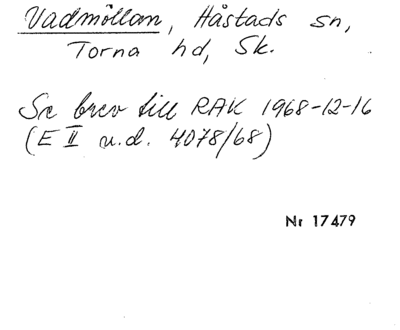 Vadmöllan, Håstads sn,
Torna hd, Sk.
Se brev till RAK 1968-12-16
(E II u.d. 4078/68)
Nr 17479